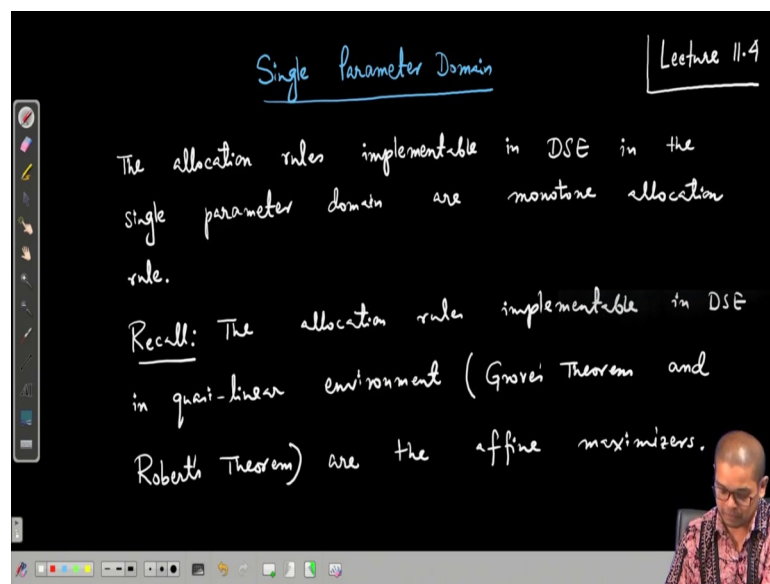 Single Parameter Domain
Lecture 11.4
The allocation rules implementable in DSE in the
single parameter domain are monotone allocation
rule.
Recall: The allocation rules implementable in DSE
in quasi-linear environment (Groves Theorem and
Robert's Theorem) are the affine maximizers.